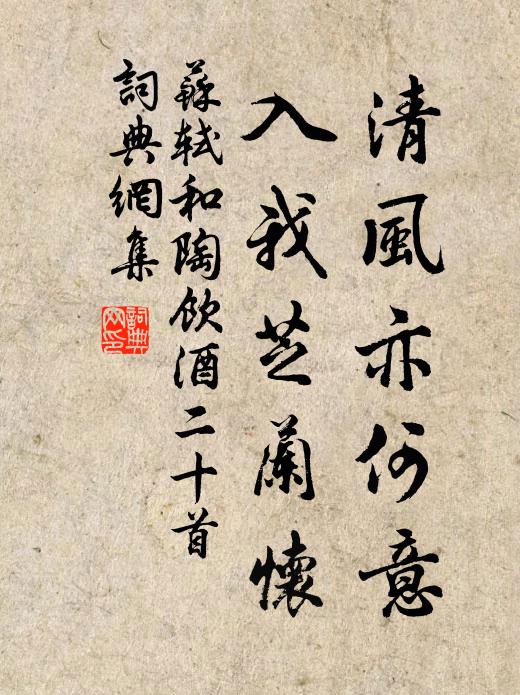 清風亦何意
入我芝蘭懷
蘇軾和陶飲酒二十首
詞典網集
詞典網印